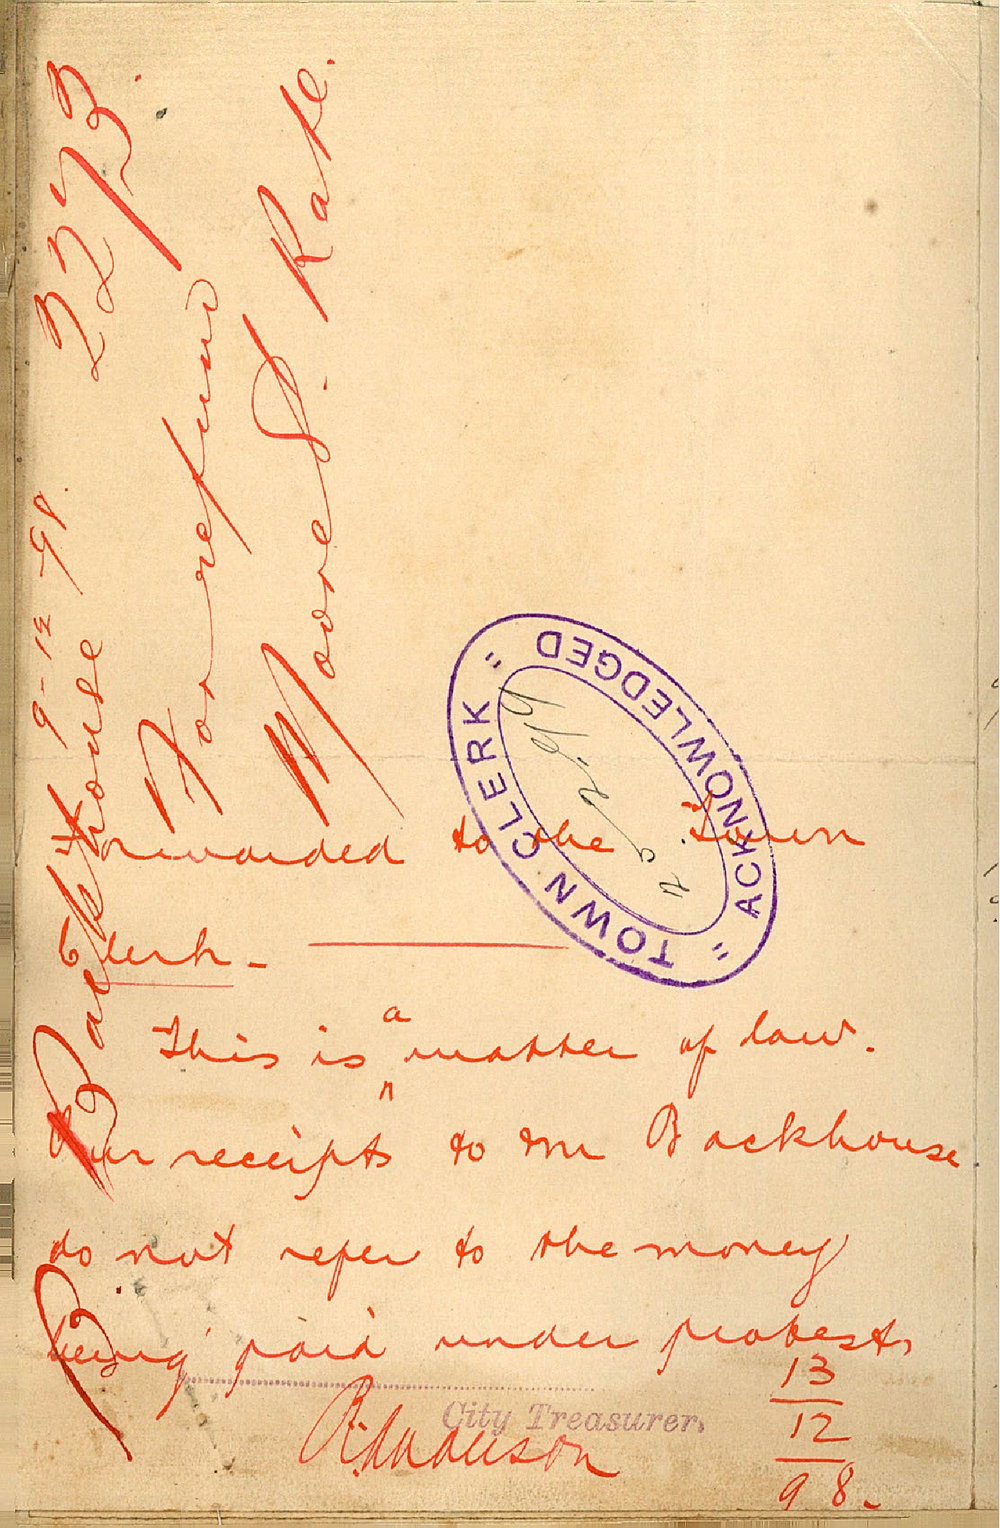 2273
9-12-98.
B. Backhouse
For refund
Moored. Rate.
"TOWN CLERK"
ACKNOWLEDGED
Forwarded to the Town
Clerk -
This is a matter of law.
Our receipts to Mr Backhouse
do not refer to the money
being paid under protest
City Treasurer.
13
12
98.